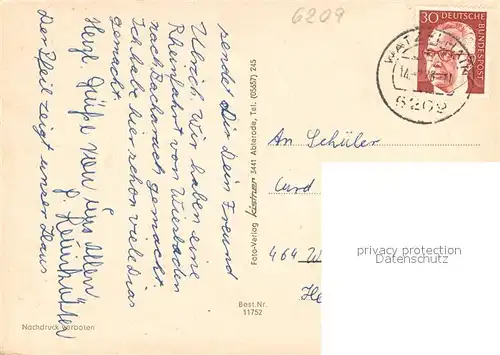 6209
30 DEUTSCHE
BUNDESPOST
WATZELHAIN
6209
sendet Dir dein Freund
Ulrich. Wir haben eine
Rheinfahrt von Wiesbaden
nach Bacharach gemacht.
Ich habe hier schon viele Dias
gemacht.
Herzl. Grüße von uns allen
Der Pfeil zeigt unser Haus
Foto-Verlag 3441 Abterode, Tel. (05657) 245
An Schüler
Curd
464 W
He
privacy protection
www.ansichtskarten-center.de
Best.Nr.
11752
Nachdruck verboten